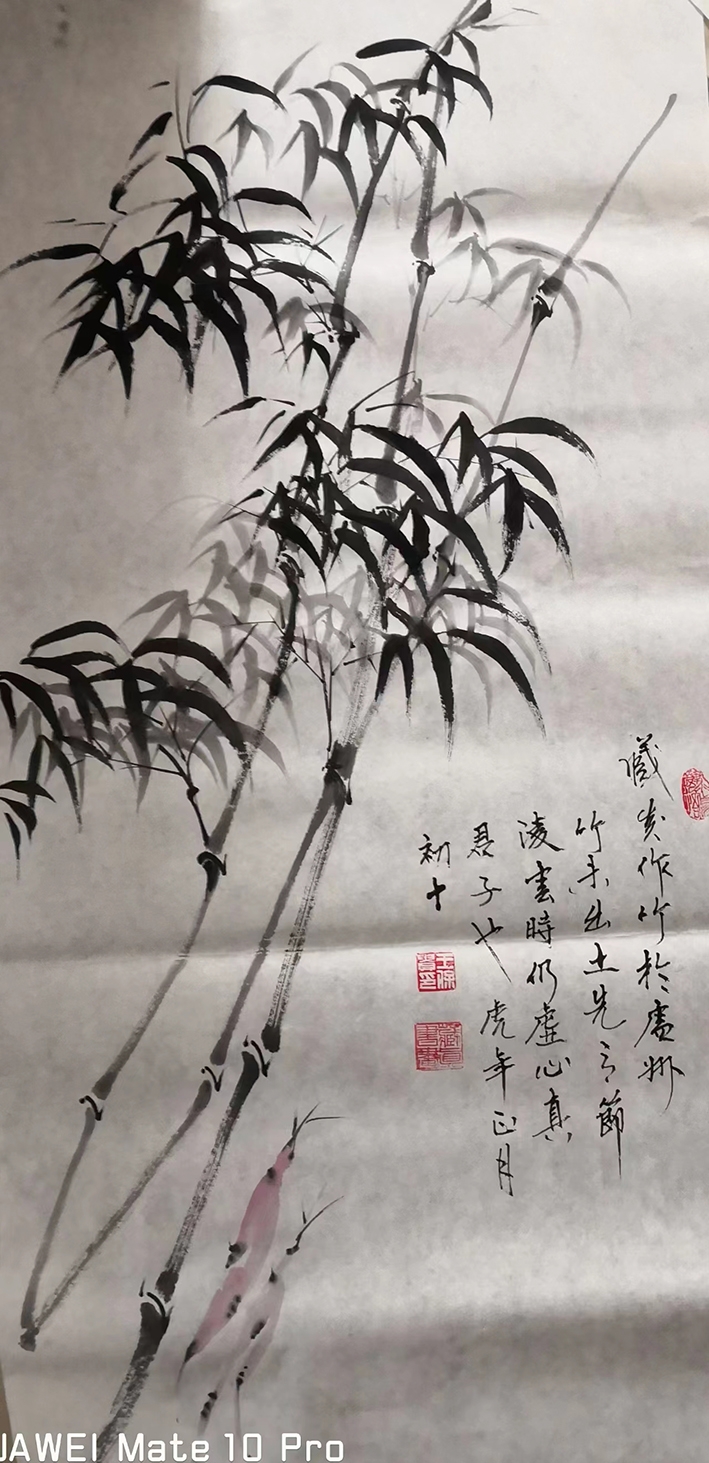 作竹於州
竹未出土先有節
凌雲時仍虛心真
君子也 虎年正月
初十
UAWEI Mate 10 Pro